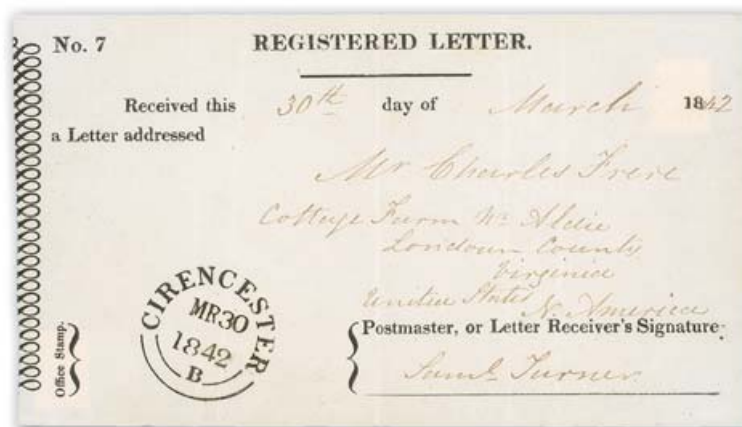 No. 7
REGISTERED LETTER.
Received this 30th day of March 1842
a Letter addressed
Mr Charles Frere
Cottage Farm Nr. Aldie
Loudoun County
Virginia
United States N. America
CIRENCESTER
MR30
1842
B
Office Stamp.
Postmaster, or Letter Receiver's Signature
Saml. Turner